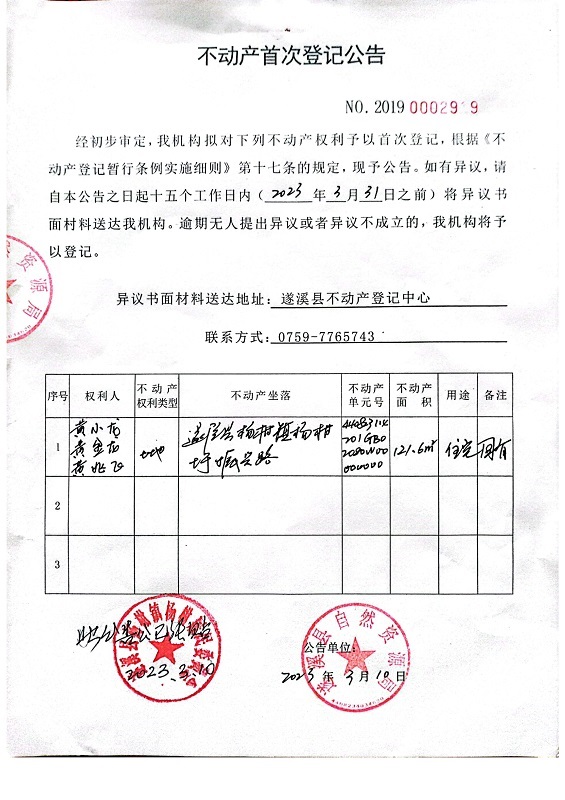 不动产首次登记公告
NO. 2019 0002919
经初步审定,我机构拟对下列不动产权利予以首次登记,根据《不
动产登记暂行条例实施细则》第十七条的规定,现予公告。如有异议,请
自本公告之日起十五个工作日内(2023年3月31日之前)将异议书
面材料送达我机构。逾期无人提出异议或者异议不成立的,我机构将予
以登记。
资源局
异议书面材料送达地址: 遂溪县不动产登记中心
联系方式: 0759-7765743
序号 权利人 不动产权利类型 不动产坐落 不动产单元号 不动产面积 用途 备注
1 黄小龙 黄金龙 黄兆飞 土地 遂溪县杨柑镇杨柑圩振兴路 121.6m² 住宅 国有
2
3
2023.3.10
遂溪县自然资源局
公告单位:
2023年3月10日